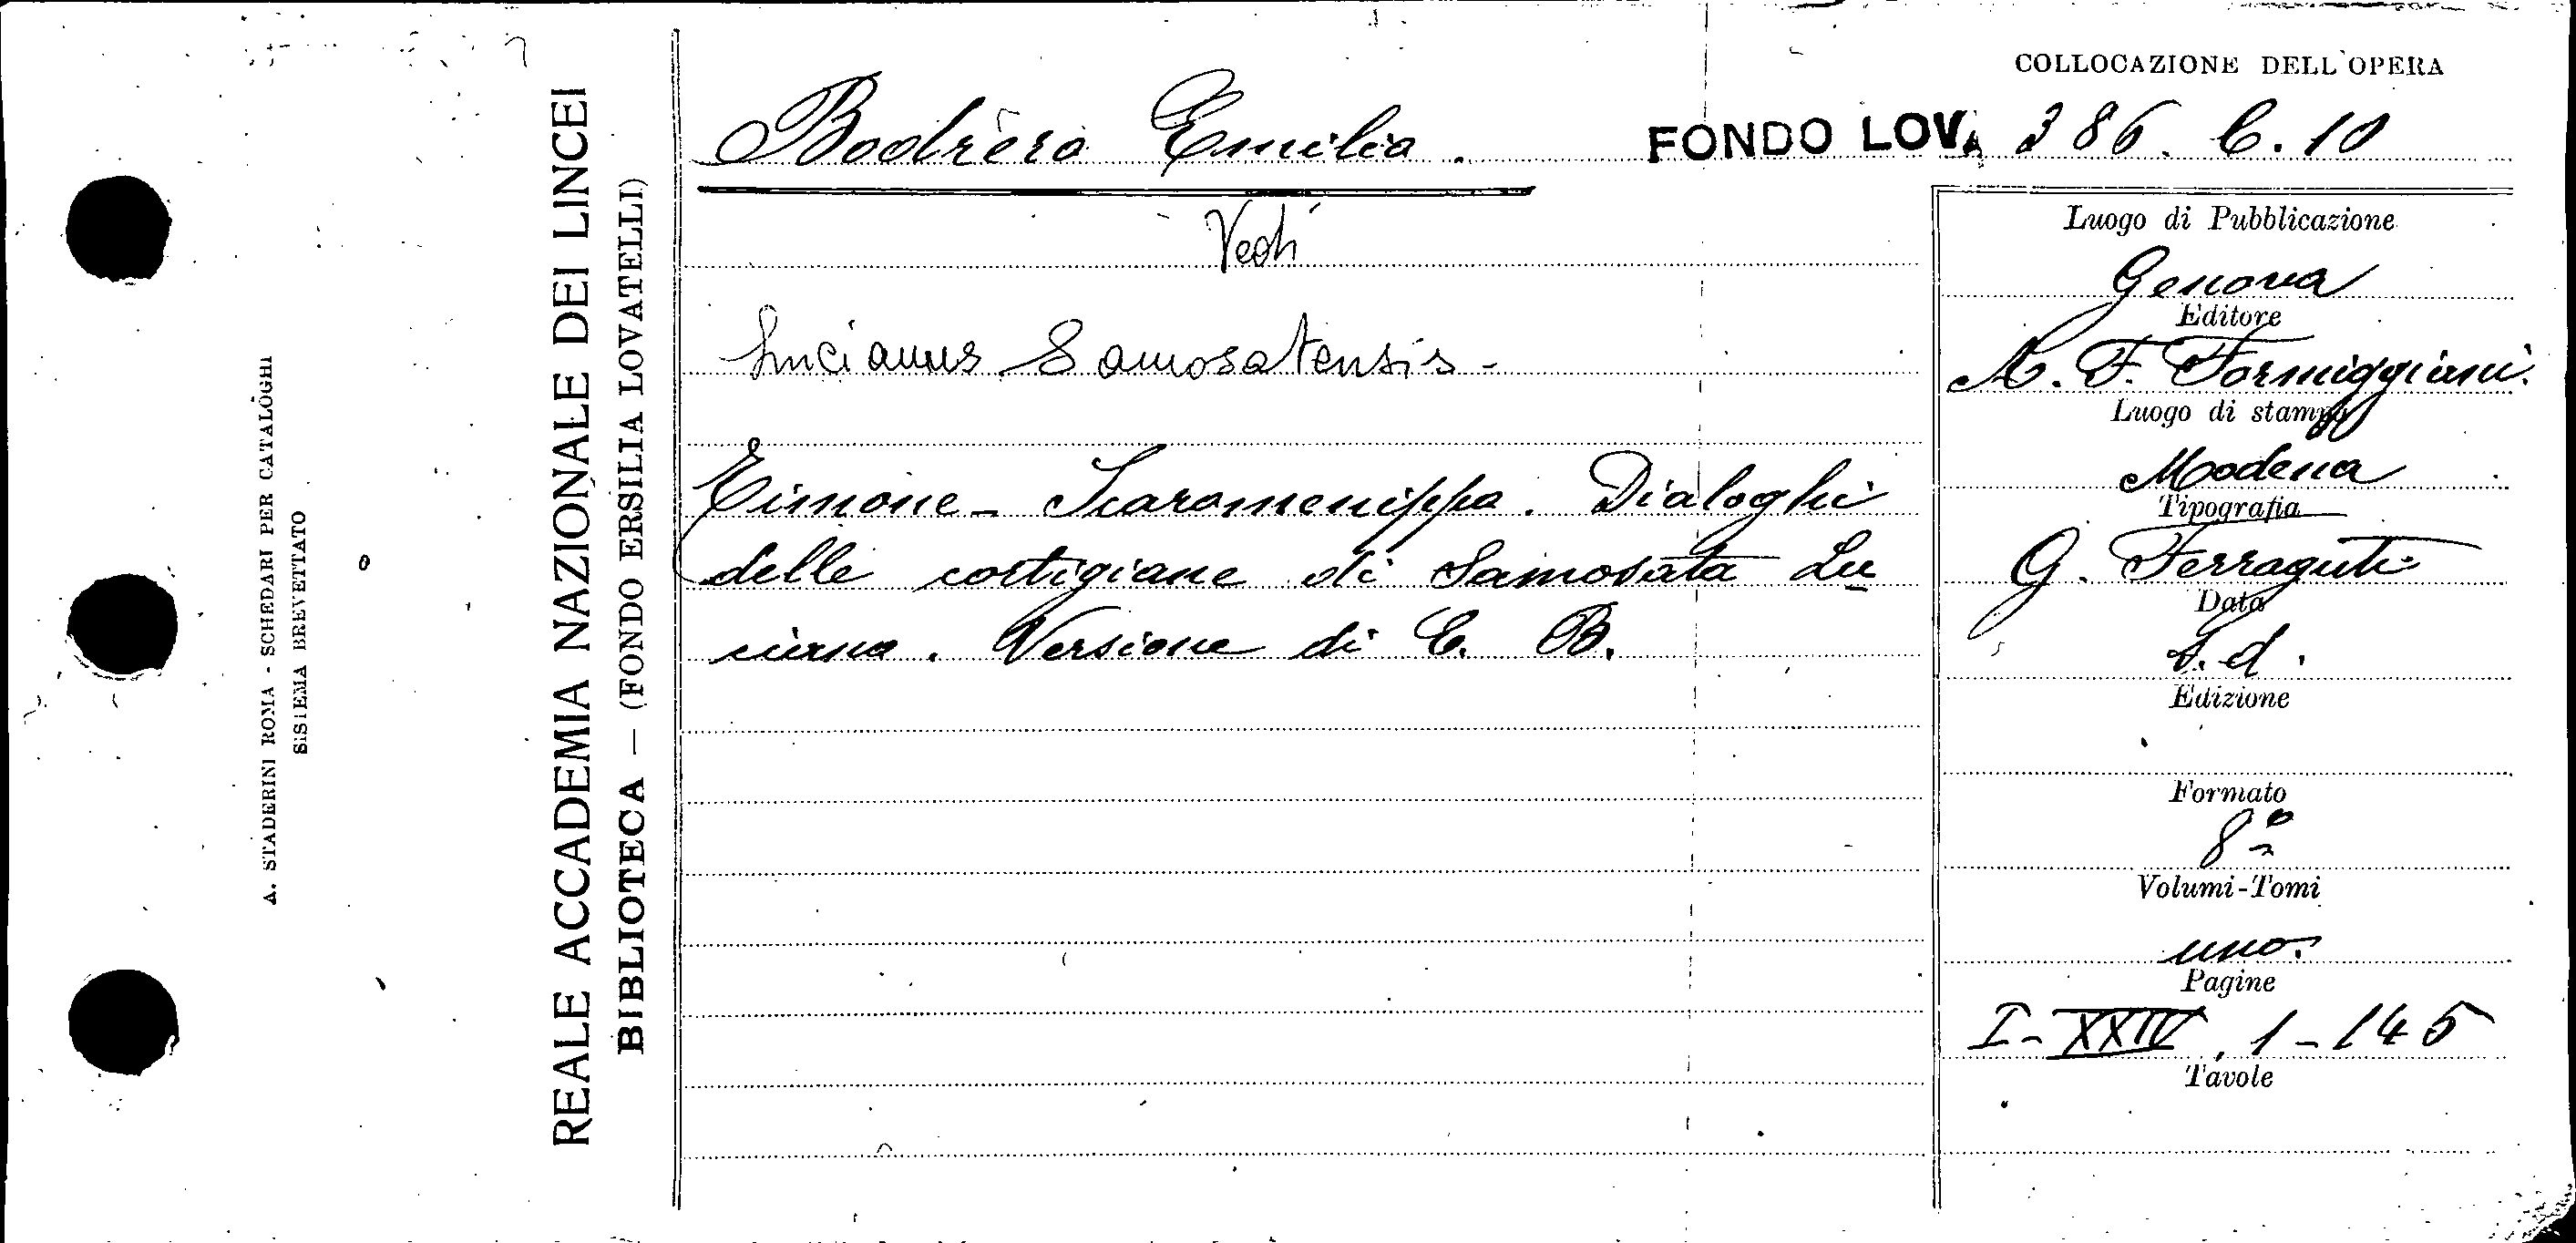 A. STADERINI ROMA - SCHEDARI PER CATALOGHI
SISTEMA BREVETTATO
REALE ACCADEMIA NAZIONALE DEI LINCEI
BIBLIOTECA — (FONDO ERSILIA LOVATELLI)
COLLOCAZIONE DELL'OPERA
Bodrèro Emilio.
FONDO LOV. 386. C. 10
Vedi
Lucianus Samosatensis -
Timone - Icaromenippo. Dialoghi
delle cortigiane di Samosata Lu
ciano. Versione di E. B.
Luogo di Pubblicazione
Genova
Editore
A. F. Formiggini.
Luogo di stampa
Modena
Tipografia
G. Ferraguti
Data
S. d.
Edizione
Formato
8º
Volumi-Tomi
uno.
Pagine
I-XXIV, 1-145
Tavole